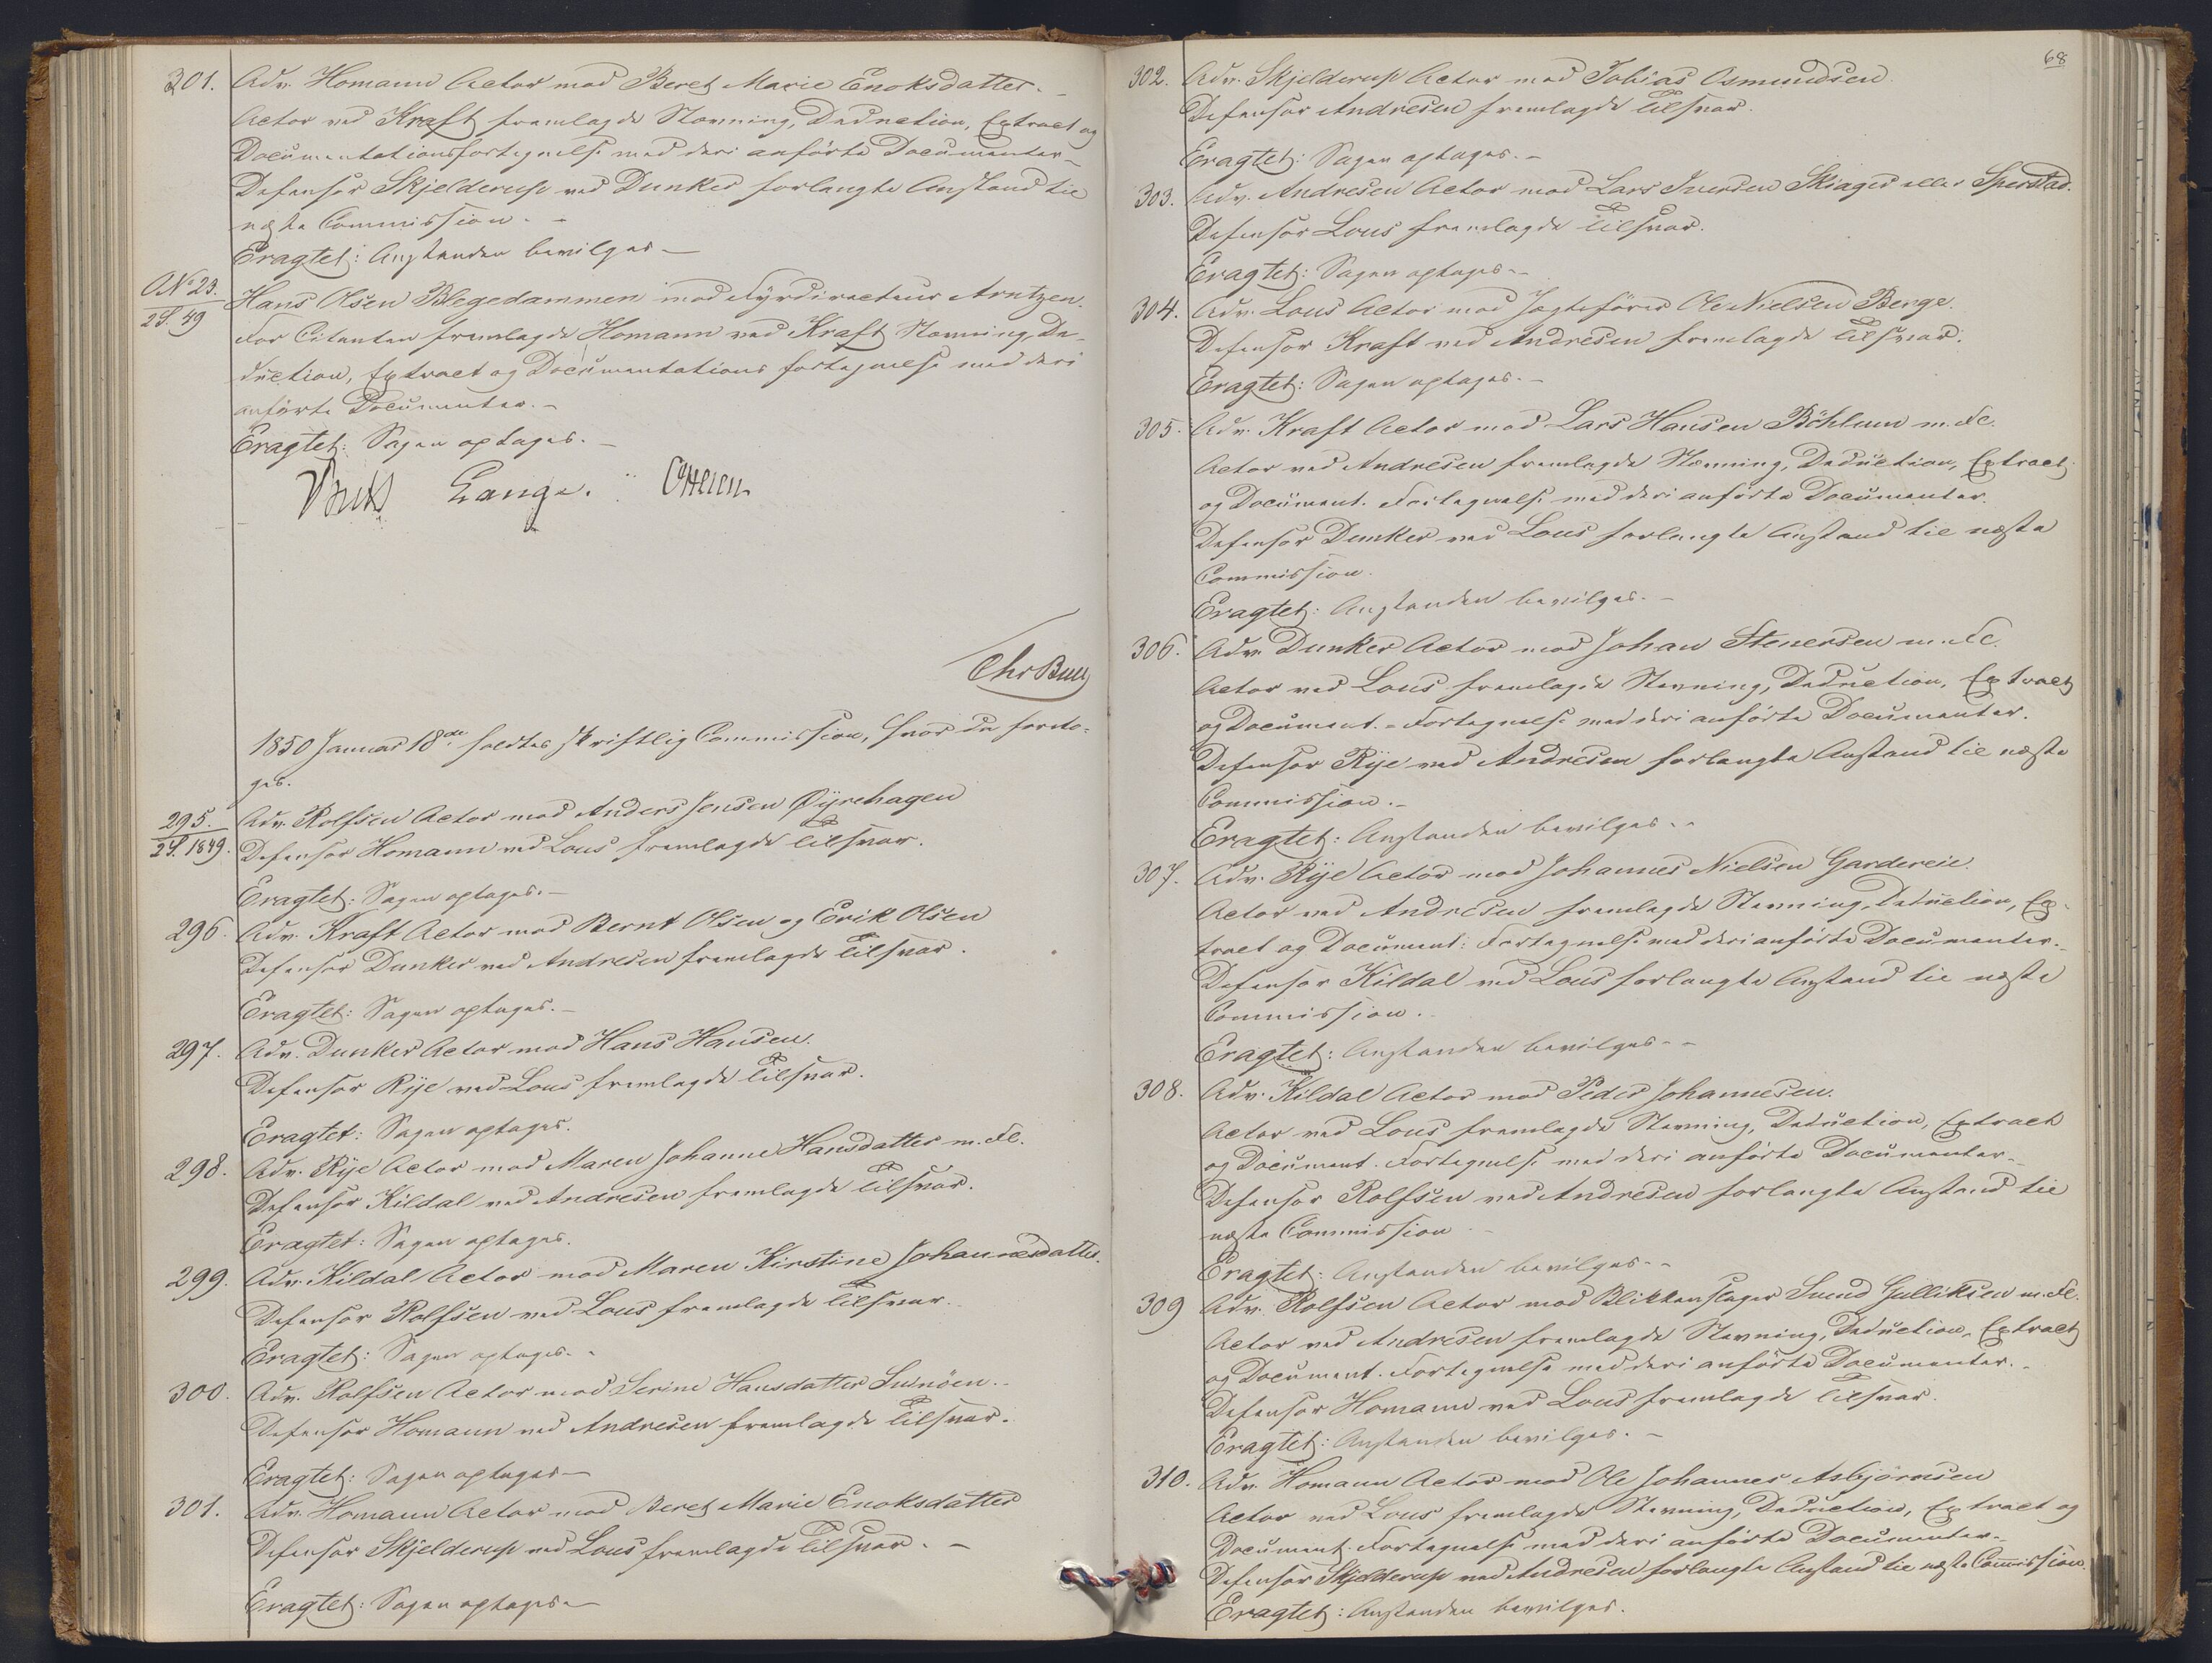 301. Adv. Homann Actor mod Beret Marie Enoksdatter.
Actor ved Kraft fremlagde Stævning, Deduction, Extract og
Documentationsfortegnelse med deri anførte Documenter.
Defensor Skjelderup ved Dunker forlangte Anstand til
næste Commission.
Eragtet: Anstanden bevilges.
O No 23.
2 S. 49
Hans Olsen Blegedammen mod Fyrdirecteur Arntzen.
For Citanten fremlagde Homann ved Kraft Stævning, De-
duction, Extract og Documentations fortegnelse med deri
anførte Documenter.
Eragtet: Sagen optages.
Lange.
Chr Bull
1850 Januar 18de holdtes skriftlig Commission, hvor da foreto-
ges.
295.
2 S. 1849.
Adv. Rolfsen Actor mod Anders Jensen Øyrehagen
Defensor Homann ved Lous fremlagde Tilsvar.
Eragtet: Sagen optages.
296. Adv. Kraft Actor mod Bernt Olsen og Erik Olsen
Defensor Dunker ved Andresen fremlagde Tilsvar.
Eragtet: Sagen optages.
297. Adv. Dunker Actor mod Hans Hansen.
Defensor Rye ved Lous fremlagde Tilsvar.
Eragtet: Sagen optages.
298. Adv. Rye Actor mod Maren Johanne Hansdatter m. Fl.
Defensor Kildal ved Andresen fremlagde Tilsvar.
Eragtet: Sagen optages.
299. Adv. Kildal Actor mod Maren Kirstine Johannesdatter.
Defensor Rolfsen ved Lous fremlagde Tilsvar.
Eragtet: Sagen optages.
300. Adv. Rolfsen Actor mod Serine Hansdatter
Defensor Homann ved Andresen fremlagde Tilsvar.
Eragtet: Sagen optages
301. Adv. Homann Actor mod Beret Marie Enoksdatter
Defensor Skjelderup ved Lous fremlagde Tilsvar.
Eragtet: Sagen optages
68
302. Adv. Skjelderup Actor mod Tobias Osmundsen.
Defensor Andresen fremlagde Tilsvar.
Eragtet: Sagen optages.
303. Adv. Andresen Actor mod Lars Iversen Skiager eller Sperstad.
Defensor Lous fremlagde Tilsvar.
Eragtet: Sagen optages.
304. Adv. Lous Actor mod Jagtefører Ole Nielsen Berge.
Defensor Kraft ved Andresen fremlagde Tilsvar.
Eragtet: Sagen optages.
305. Adv. Kraft Actor mod Lars Hansen Böhlum m. Fl.
Actor ved Andresen fremlagde Stævning, Deduction, Extract
og Document. Fortegnelse med deri anførte Documenter.
Defensor Dunker ved Lous forlangte Anstand til næste
Commission.
Eragtet: Anstanden bevilges.
306. Adv. Dunker Actor mod Johan Stenersen m. Fl.
Actor ved Lous fremlagde Stævning, Deduction, Extract
og Document.- Fortegnelse med deri anførte Documenter.
Defensor Rye ved Andresen forlangte Anstand til næste
Commission.
Eragtet: Anstanden bevilges.
307. Adv. Rye Actor mod Johannes Nielsen Gardereie.
Actor ved Andresen fremlagde Stævning, Deduction, Ex-
tract og Document: Fortegnelse med deri anførte Documenter.
Defensor Kildal ved Lous forlangte Anstand til næste
Commission.
Eragtet: Anstanden bevilges.
308. Adv. Kildal Actor mod Peder Johannesen.
Actor ved Lous fremlagde Stævning, Deduction, Extract
og Document. Fortegnelse med deri anførte Documenter.
Defensor Rolfsen ved Andresen forlangte Anstand til
næste Commission
Eragtet: Anstanden bevilges.
309 Adv. Rolfsen Actor mod Blikkenslager Svend Gulliksen m. Fl.
Actor ved Andresen fremlagde Stævning, Deduction, Extract
og Document. Fortegnelse med deri anførte Documenter.
Defensor Homann ved Lous fremlagde Tilsvar.
Eragtet: Anstanden bevilges.
310. Adv. Homann Actor mod Ole Johannes Asbjørnsen
Actor ved Lous fremlagde Stævning, Deduction, Extract og
Document. Fortegnelse med deri anførte Documenter.
Defensor Skjelderup ved Andresen forlangte Anstand til næste Commission.
Eragtet: Anstanden bevilges.